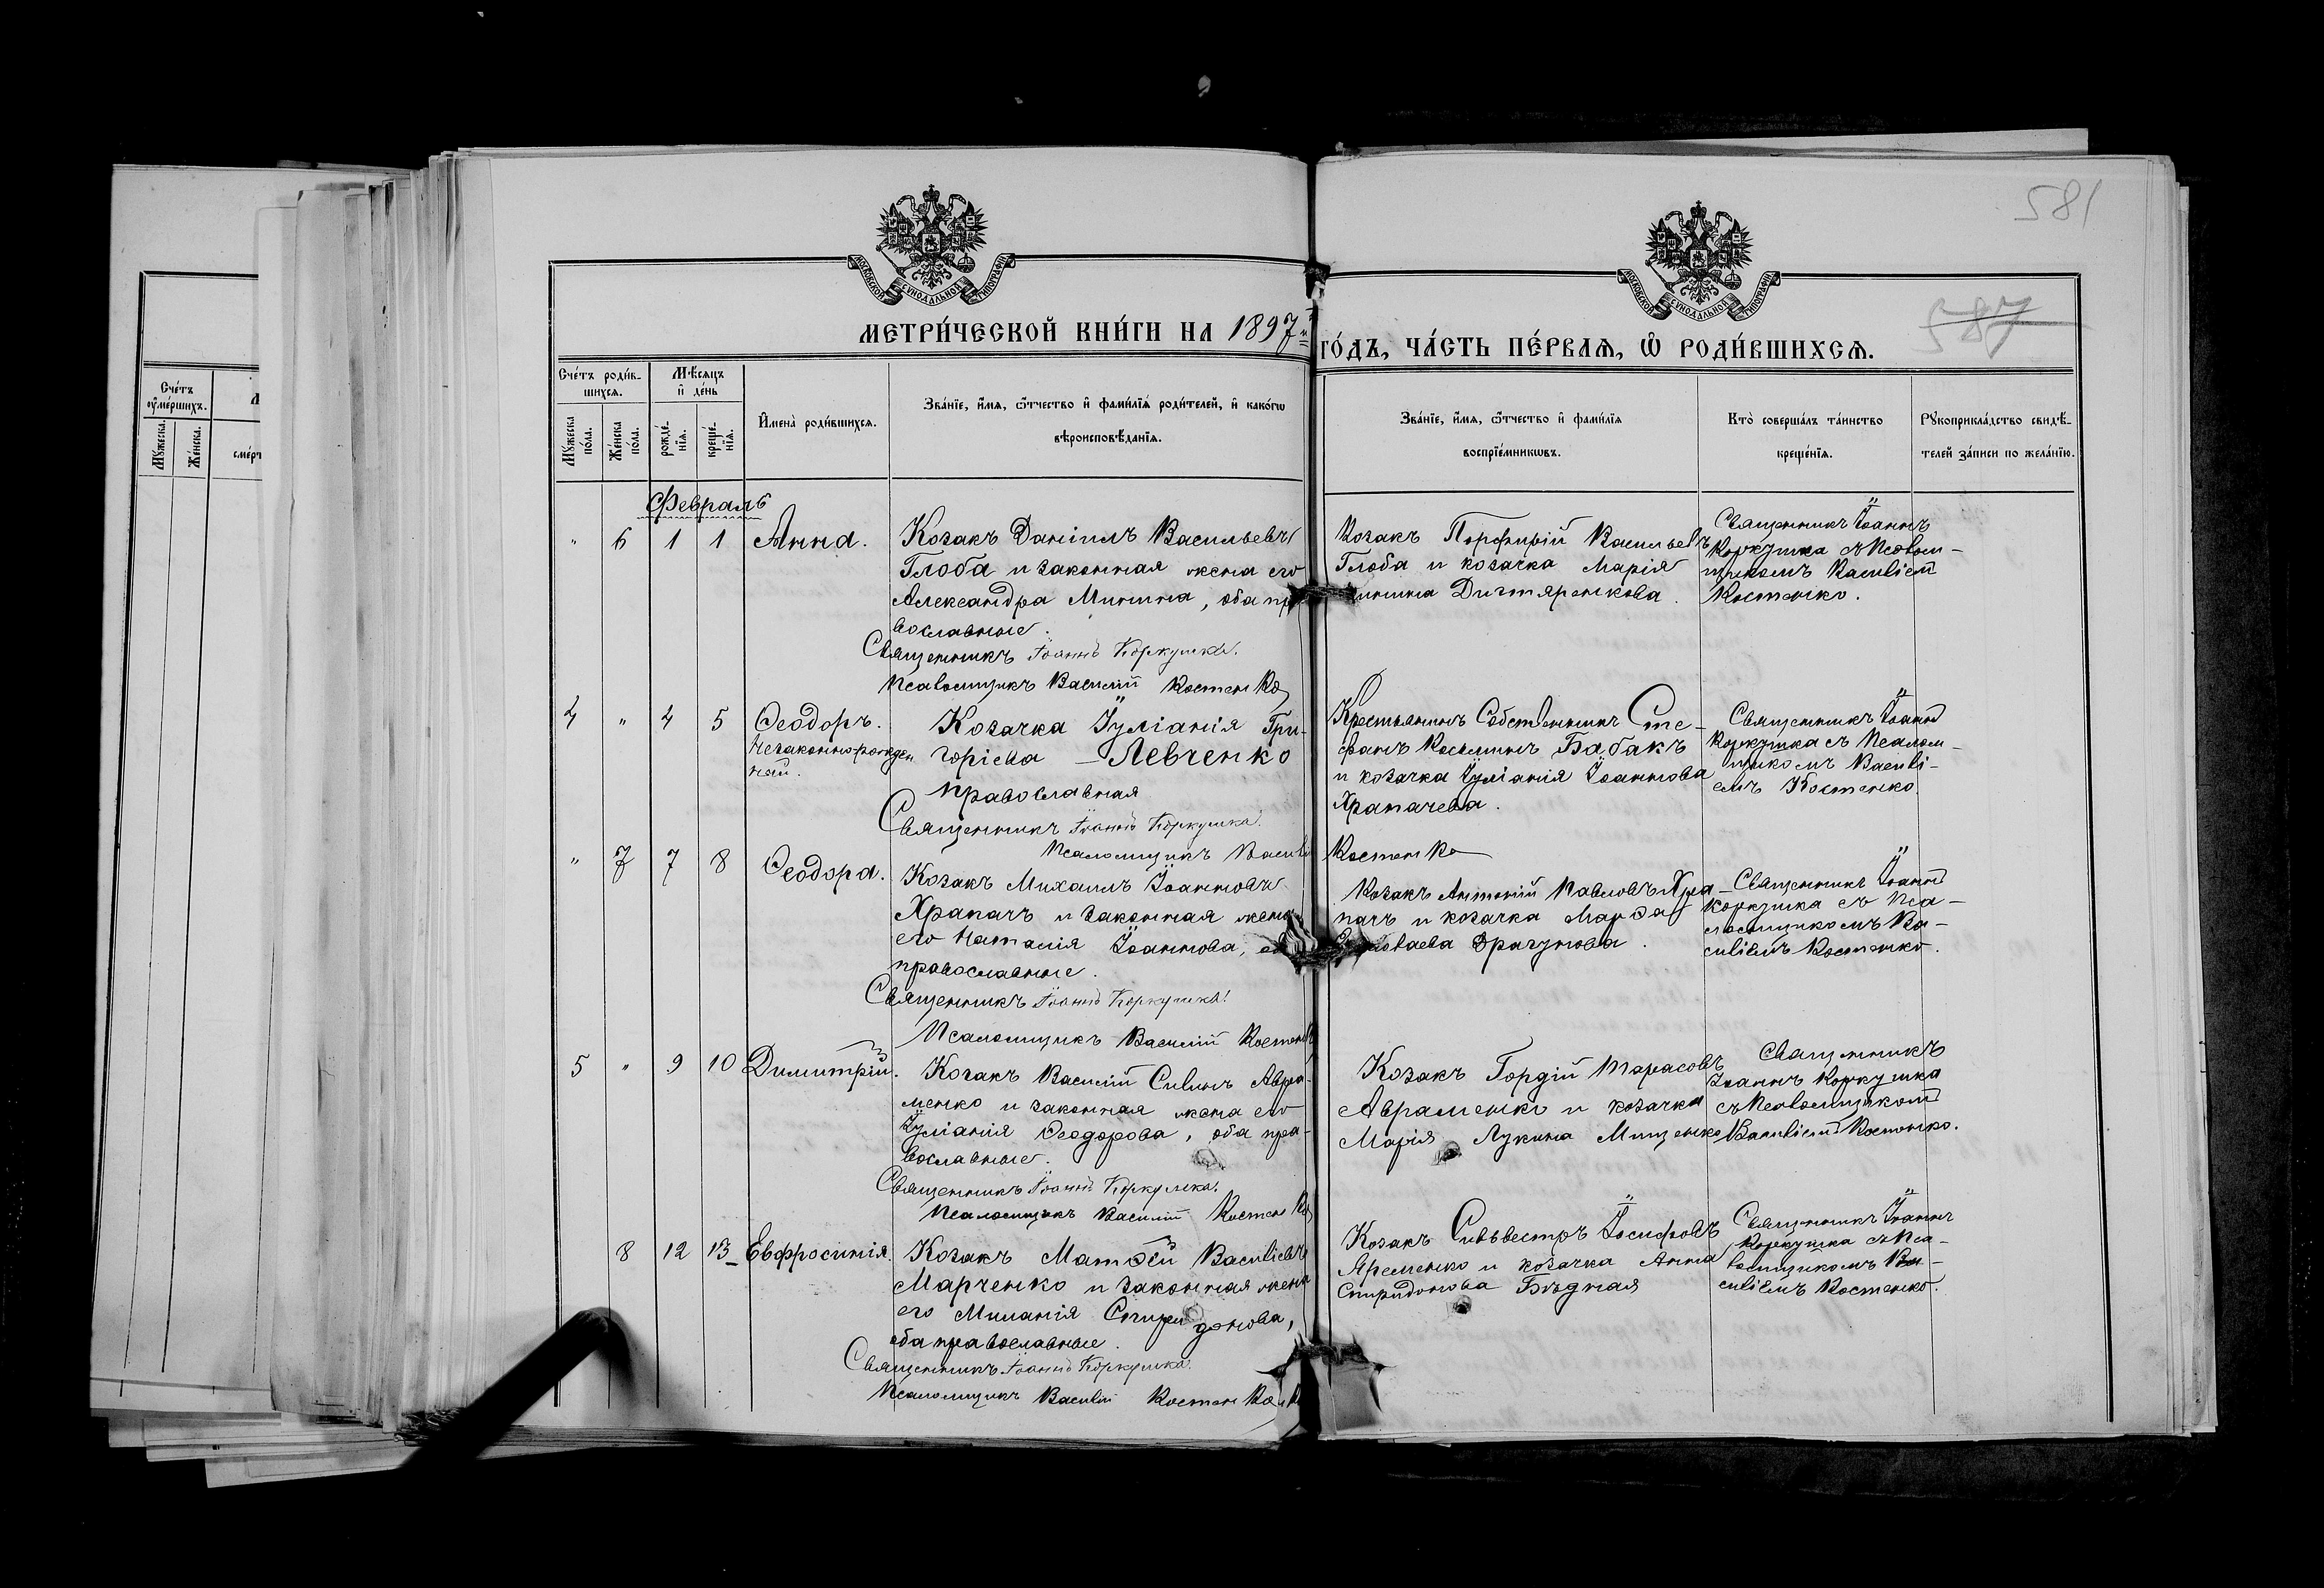 581
587
МОСКОВСКОЙ СѴНОДАЛЬНОЙ ТИПОГРАФІИ
МОСКОВСКОЙ СѴНОДАЛЬНОЙ ТИПОГРАФІИ
МЕТРИ́ЧЕСКОЙ КНИ́ГИ НА 1897
ГО́ДЪ, ЧА́СТЬ ПЕ́РВАѦ, Ѡ РОДИ́ВШИХСѦ.
Сче́тъ
оу҆ме́ршихъ.
Мꙋ́жеска.
Же́нска.
Сче́тъ роди́в-
шихсѧ.
Мꙋ́жеска
по́ла.
Же́нска
по́ла.
Мѣ́сѧцъ
и҆ де́нь
рожде́-
нїѧ.
креще́-
нїѧ.
И҆мена̀ роди́вшихсѧ.
Зва́нїе, и҆́мѧ, ѻ҆́тчество и҆ фами́лїѧ роди́телей, и҆ како́гѡ
вѣроисповѣ́данїѧ.
Зва́нїе, и҆́мѧ, ѻ҆́тчество и҆ фами́лїѧ
воспрїе́мникѡвъ.
Кто̀ соверша́лъ та́инство
креще́нїѧ.
Рꙋкоприкла́дство свидѣ́-
телей за́писи по жела́нїю.
Февраль
" 6 1 1 Анна.
Козакъ Даніилъ Васильевъ
Глоба и законная жена его
Александра Минина, оба пра
вославные.
Священникъ Іоаннъ Коркушка.
Псаломщикъ Василій Костенко
Козакъ Порфирій Васильевъ
Глоба и козачка Марія
Дигтяренкова.
Священникъ Іоаннъ
Коркушка съ Псалом-
щикомъ Василіем
Костенко.
4 " 4 5 Ѳеодоръ.
незаконнорожден
ный.
Козачка Іуліанія Гри-
горіева Левченко
православная
Священникъ Іоаннъ Коркушка.
Псаломщикъ Василій Костенко
Крестьянинъ Собственникъ Сте-
фанъ Косьминъ Бабакъ
и козачка Іуліанія Іоаннова
Храпачева.
Священникъ Іоаннъ
Коркушка съ Псалом-
щикомъ Васили-
емъ Костенко
" 7 7 8 Ѳеодора.
Козакъ Михаилъ Іоанновъ
Храпачъ и законная жена
его Наталія Іоаннова, оба
православные.
Священникъ Іоаннъ Коркушка.
Псаломщикъ Василій Костенко
Козакъ Антоній Павловъ Хра-
пачъ и козачка Марѳа
Драгунова.
Священникъ Іоаннъ
Коркушка съ Пса-
ломщикомъ Ва-
силіемъ Костенко.
5 " 9 10 Димитрій.
Козакъ Василій Силинъ Авра-
менко и законная жена его
Іуліанія Ѳеодорова, оба пра-
вославные.
Священникъ Іоаннъ Коркушка.
Псаломщикъ Василій Костенко
Козакъ Гордій Тарасовъ
Авраменко и козачка
Марія Лукина Мищенко
Священникъ
Іоаннъ Коркушка
съ Псаломщикомъ
Василіемъ Костенко.
8 12 13 Евфросинія.
Козакъ Матѳей Василіевъ
Марченко и законная жена
его Миланія Спиридонова,
оба православные.
Священникъ Іоаннъ Коркушка.
Псаломщикъ Василій Костенко
Козакъ Сильвестръ Іосифовъ
Яременко и козачка Анна
Спиридонова Бѣдная
Священникъ Іоаннъ
Коркушка съ Пса-
ломщикомъ Ва-
силіемъ Костенко.